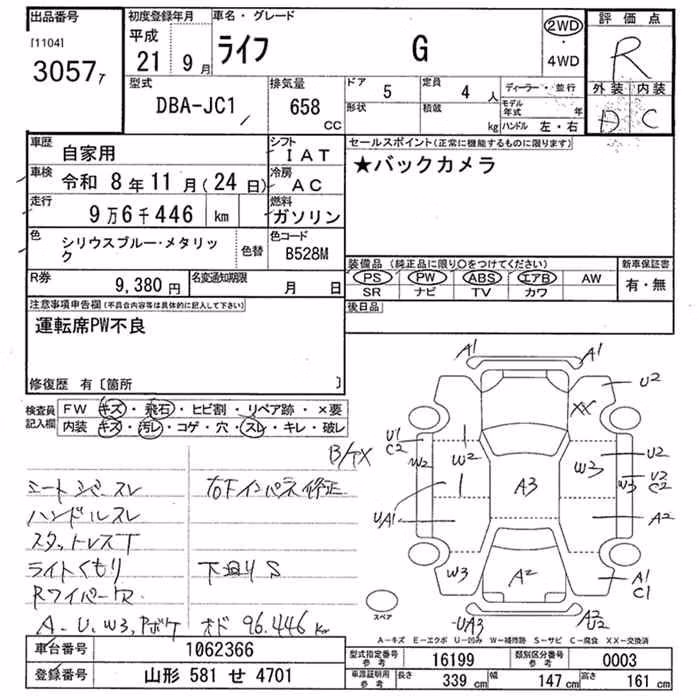 出品番号
[1104]
3057
初度登録年月
平成
21 9 月
車名・グレード
ライフ G
2WD
・
4WD
評価点
R
外装 内装
D C
型式
DBA-JC1
排気量
658
CC
ドア
5
定員
4 人
形状
積載
kg
ディーラー・並行
モデル年式 年
ハンドル 左・右
車歴
自家用
シフト
IAT
車検
令和 8年 11月(24日)
冷房
AC
走行
9万6千446 km
燃料
ガソリン
色
シリウスブルー・メタリック
色替
色コード
B528M
R券
9,380 円
名変通知期限
月 日
セールスポイント(正常に機能するものに限ります)
★バックカメラ
装備品(純正品に限り○をつけてください)
PS PW ABS エアB AW
SR ナビ TV カワ
新車保証書
有・無
後日品
注意事項申告欄(不具合内容等は具体的に記入して下さい)
運転席PW不良
修復歴 有〔箇所 〕
検査員記入欄
FW キズ・飛石・ヒビ割・リペア跡・×要
内装 キズ・汚レ・コゲ・穴・スレ・キレ・破レ
シートシバ スレ
ハンドルスレ
スタットレスT
ライトくもり
Rワイパー
A-U、W3、Pボケ
右Fインパネ修正
下廻りS
オド 96.446 km
A1 A1
U2
XX
U1
C2
W2
W2
W3
U2
W3
U2
C2
A3
UA1
A2
W3
A2
A1
C1
UA3
A2
U2
スペア
A-キズ E-エクボ U-凹み W-補修跡 S-サビ C-腐食 XX-交換済
車台番号
1062366
登録番号
山形 581 せ 4701
型式指定番号
参考
16199
類別区分番号
参考
0003
車庫証明用
参考
長さ
339 cm
幅
147 cm
高さ
161 cm